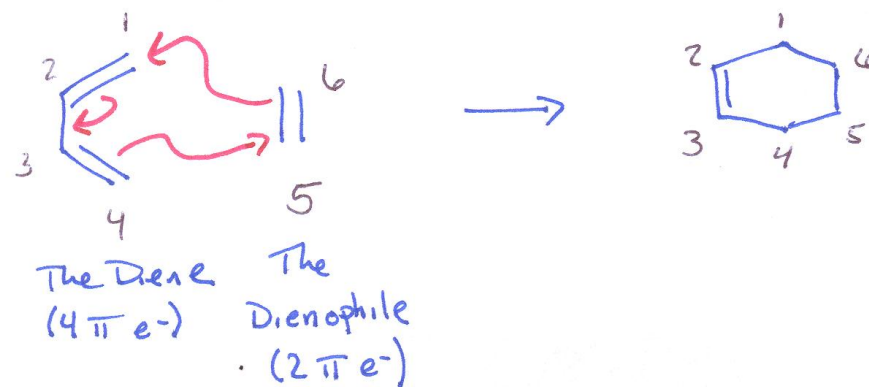 1
2
6
3
4
5
The Diene
(4 π e-)
The
Dienophile
(2 π e-)
1
2
6
3
4
5